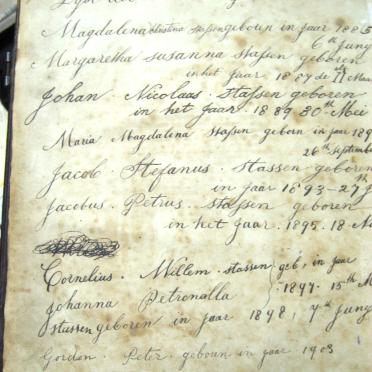 Magdalena christina stassen geboren in jaar 1885
6th Juny
Margaretha susanna stassen geboren
in het jaar 1887 de 11th Maa
Johan Nicolaas stassen geboren
in het jaar. 1889 30th Mei
Maria Magdalena stassen geboren in jaar 189
26th September
Jacob. Stefanus. stassen geboren
in jaar 1893-27
Jacobus. Petrus. stassen geboren
in het jaar. 1895. 18 N
Cornelius. Willem. stassen geb, in jaar
1897. 15th M
Johanna Petronalla
stassen geboren in jaar 1898, 7th Juny
Gordon. Peter. geboun in jaar. 1903